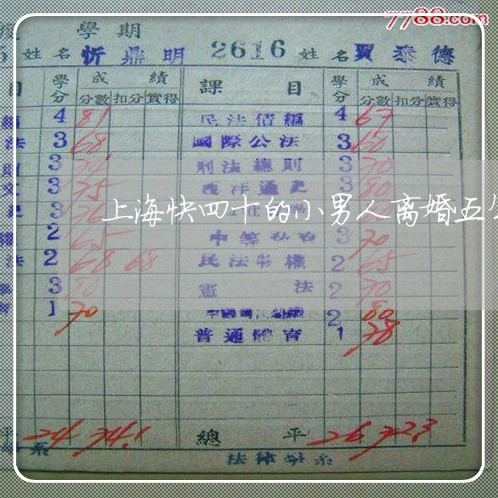 7788.com
學期
姓名 忻鼎明 2616 姓名 賈泰德
目 學分 成績 課目 學分 成績
分數 扣分 實得 分數 扣分 實得
4 81 民法債編 4 67
法 3 68 國際公法 3 60
3 刑法總則 3 70
3 75 西洋通史 3 80
上海快四十的小男人离婚五
2 65 3 70
法 2 68 68 民法物權 2 65
3 80 憲法 2 70
1 70 2 80
普通體育 1 78
平 24 74.1 總平 26 72.3
系 法律學系